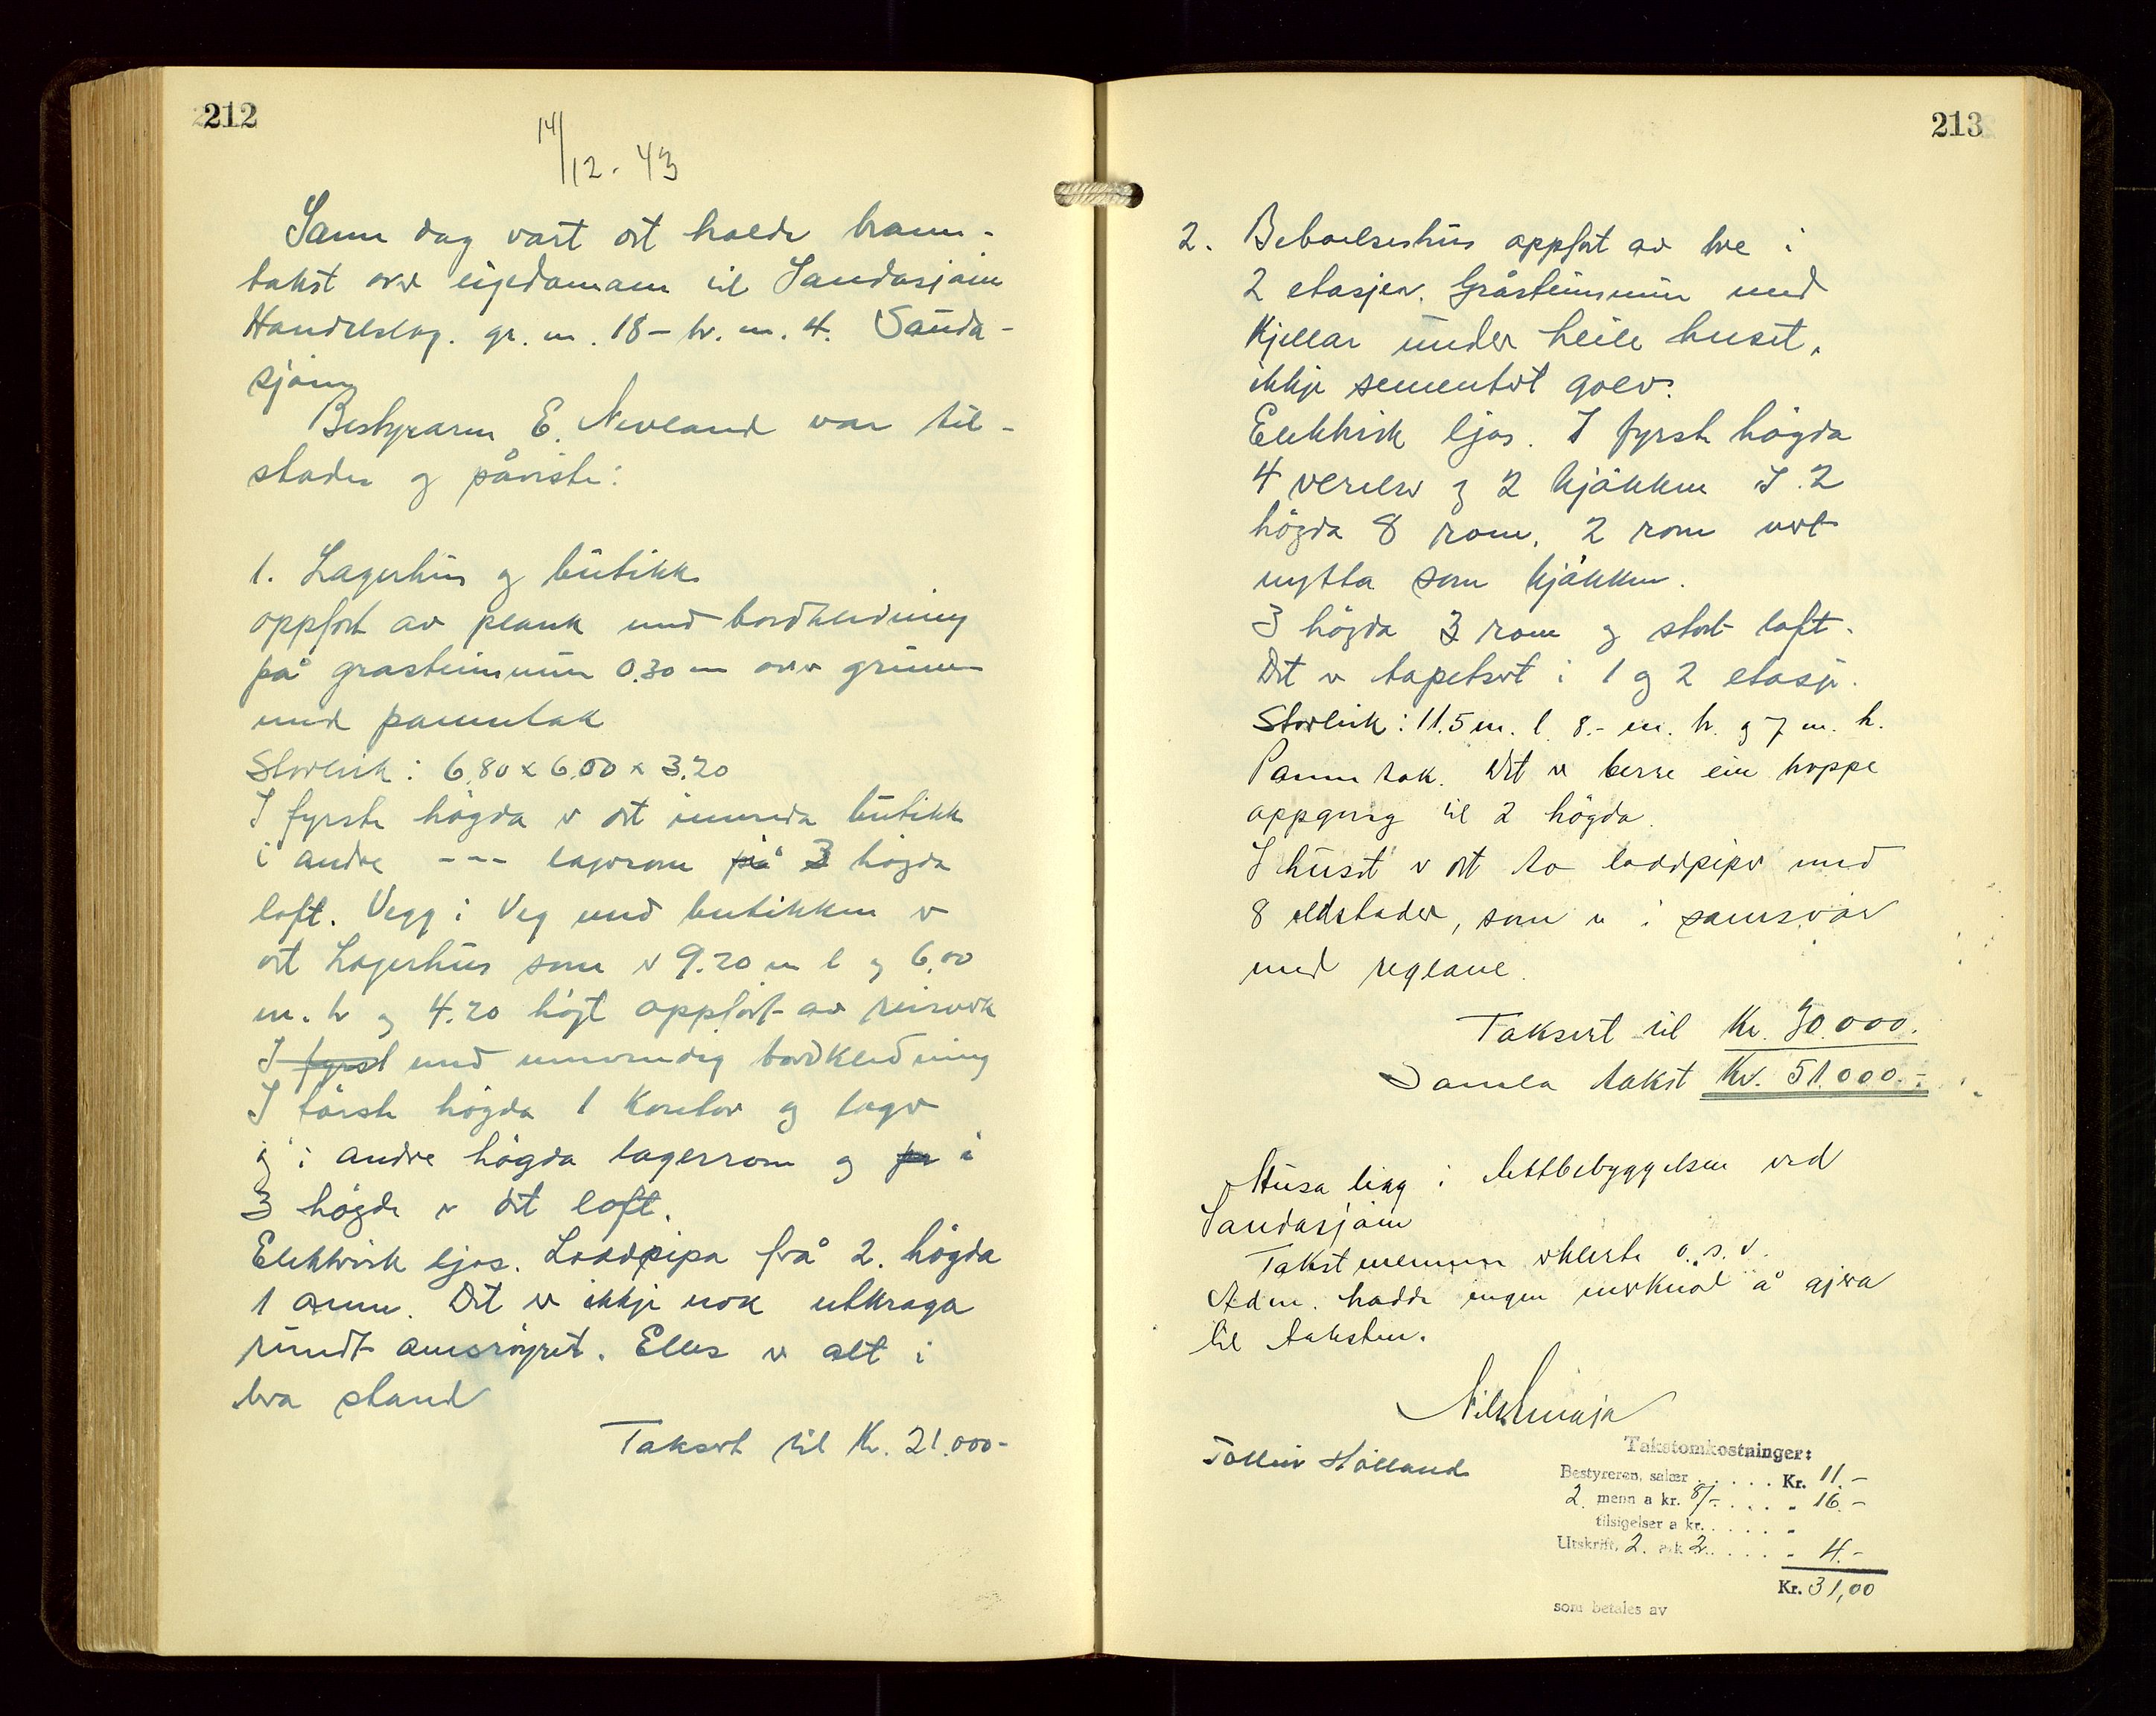 212
14/12. 43
Samme dag vart det halde brann-
takst over eigedomane til Saudasjøen
Handelslag. gr. m. 18 – br. m. 4. Sauda-
sjøen
Bestyraren E. Nevland var til-
stades og påviste:
1. Lagerhus og butikk
oppført av plank med bordkledning
på grasteinsmur 0.30 m over grunnen
med panntak
Storleik: 6.80 x 6.00 x 3.20
I fyrste högda er det innreda butikk
i andre --- lagerrom på 3 högda
loft. Vegg i Veg med butikken er
det Lagerhus som er 9.20 m l og 6.00
m. br og 4.20 högt oppfört av reisverk
I fyrst med umvendig bordkledning
I förste högda 1 Kontor og lager
og i andre högda lagerrom og på i
3 högde er det loft.
Elektrisk ljos. Loddpipa frå 2. högda
1 omn. Det er ikkje nok utkraga
rundt omsröyret. Elles er alt i
bra stand
Taksert til Kr. 21.000-
213
2. Beboelseshus oppført av tre i
2 etasjer. Gråsteinsmur med
Kjellar under heile huset,
ikkje sementert golv.
Elektrisk ljos. I fyrste högda
4 verelser og 2 kjökken I. 2
högda 8 rom, 2 rom vert
nytta som kjökken.
3 högda 3 rom og stort loft.
Det er tapetsert i 1 og 2 etasje.
Storleik: 11.5 m. l. 8.- m. br. og 7 m. h.
Panntak. Det er berre ein trappe
oppgang til 2 högda.
I huset er det to loddpiper med
8 eldstader, som er i samsvar
med reglane.
Taksert til Kr. 30.000.
Samla takst Kr. 51.000.-
Husa ligg i tettbebyggelsen ved
Saudasjøen
Takstmennene erklerte o.s.v.
Adm. hadde ingen merknad å gjera
til taksten.
Tolleiv Hølland
Takstomkostninger:
Bestyreren, salær . . . . . Kr. 11.-
2 menn a kr. 8/- . . . . " 16.-
tilsigelser a kr. . . . . . "
Utskrift, 2. ark 2. . . . . " 4.-
Kr. 31,00
som betales av